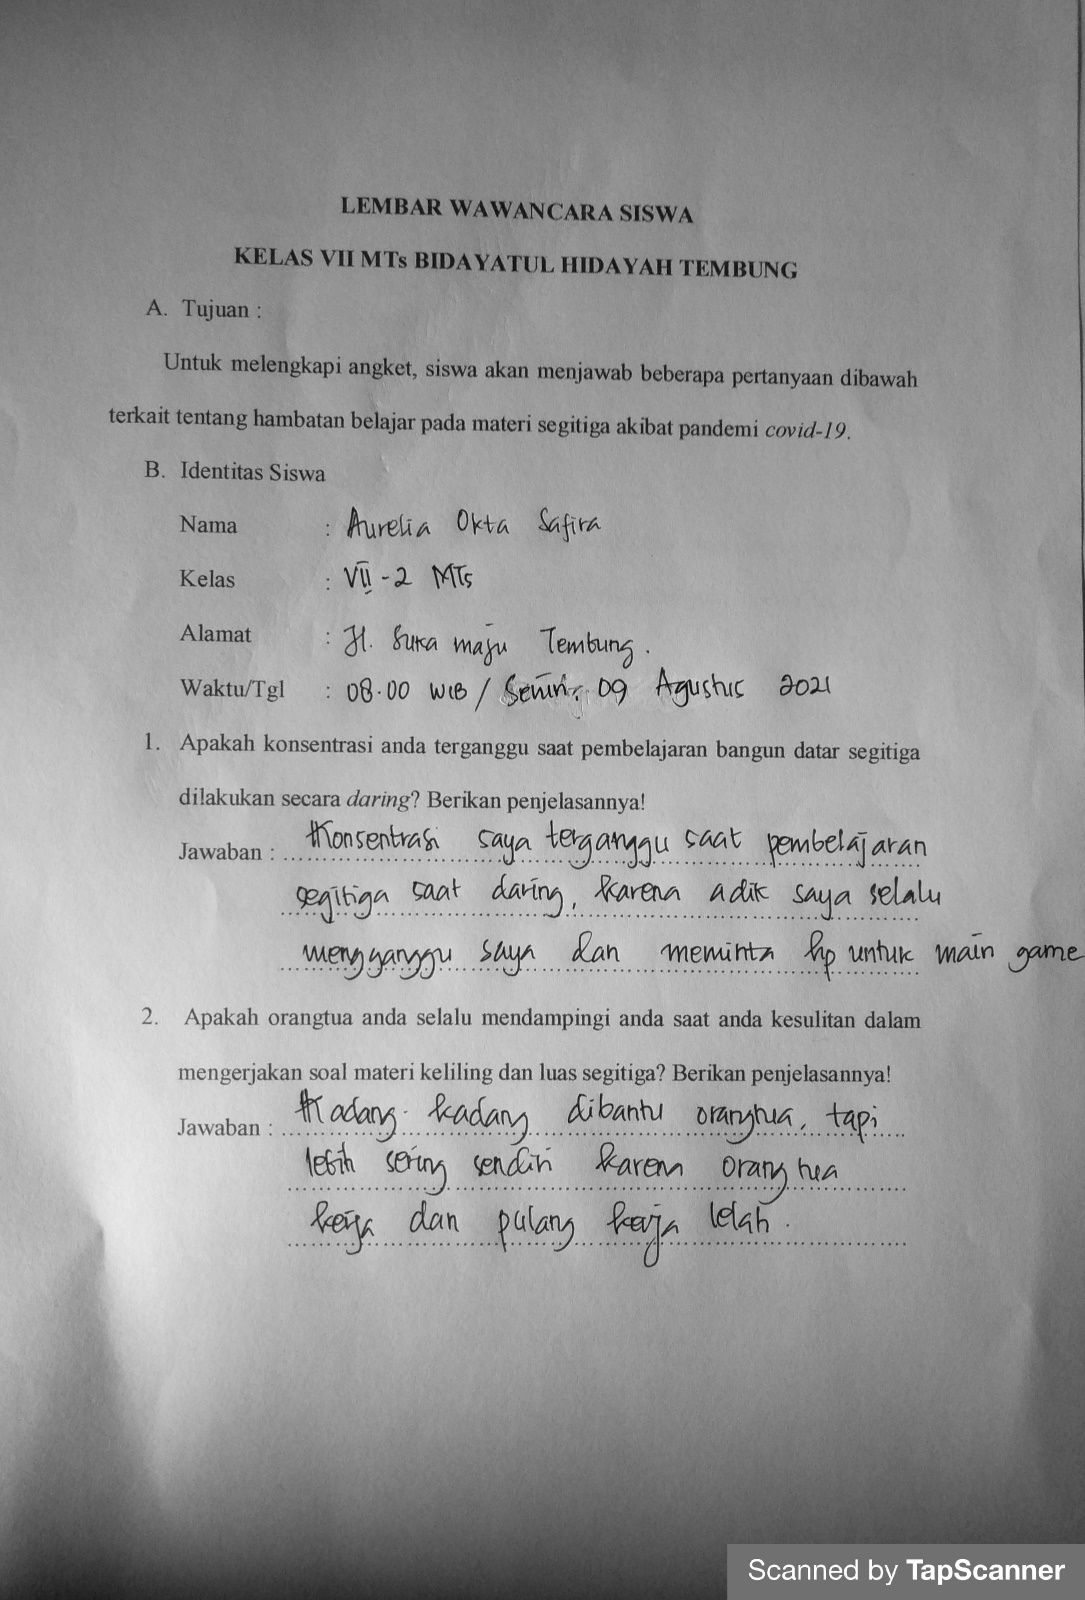 LEMBAR WAWANCARA SISWA
KELAS VII MTs BIDAYATUL HIDAYAH TEMBUNG
A. Tujuan :
Untuk melengkapi angket, siswa akan menjawab beberapa pertanyaan dibawah
terkait tentang hambatan belajar pada materi segitiga akibat pandemi covid-19.
B. Identitas Siswa
Nama : Aurelia Okta Safira
Kelas : VII - 2 MTs
Alamat : Jl. Suka maju Tembung.
Waktu/Tgl : 08.00 WIB / Senin, 09 Agustus 2021
1. Apakah konsentrasi anda terganggu saat pembelajaran bangun datar segitiga
dilakukan secara daring? Berikan penjelasannya!
Jawaban : Konsentrasi saya terganggu saat pembelajaran
segitiga saat daring, karena adik saya selalu
mengganggu saya dan meminta hp untuk main game
2. Apakah orangtua anda selalu mendampingi anda saat anda kesulitan dalam
mengerjakan soal materi keliling dan luas segitiga? Berikan penjelasannya!
Jawaban : Kadang-kadang dibantu orangtua, tapi
lebih sering sendiri karena orang tua
kerja dan pulang kerja lelah.
Scanned by TapScanner